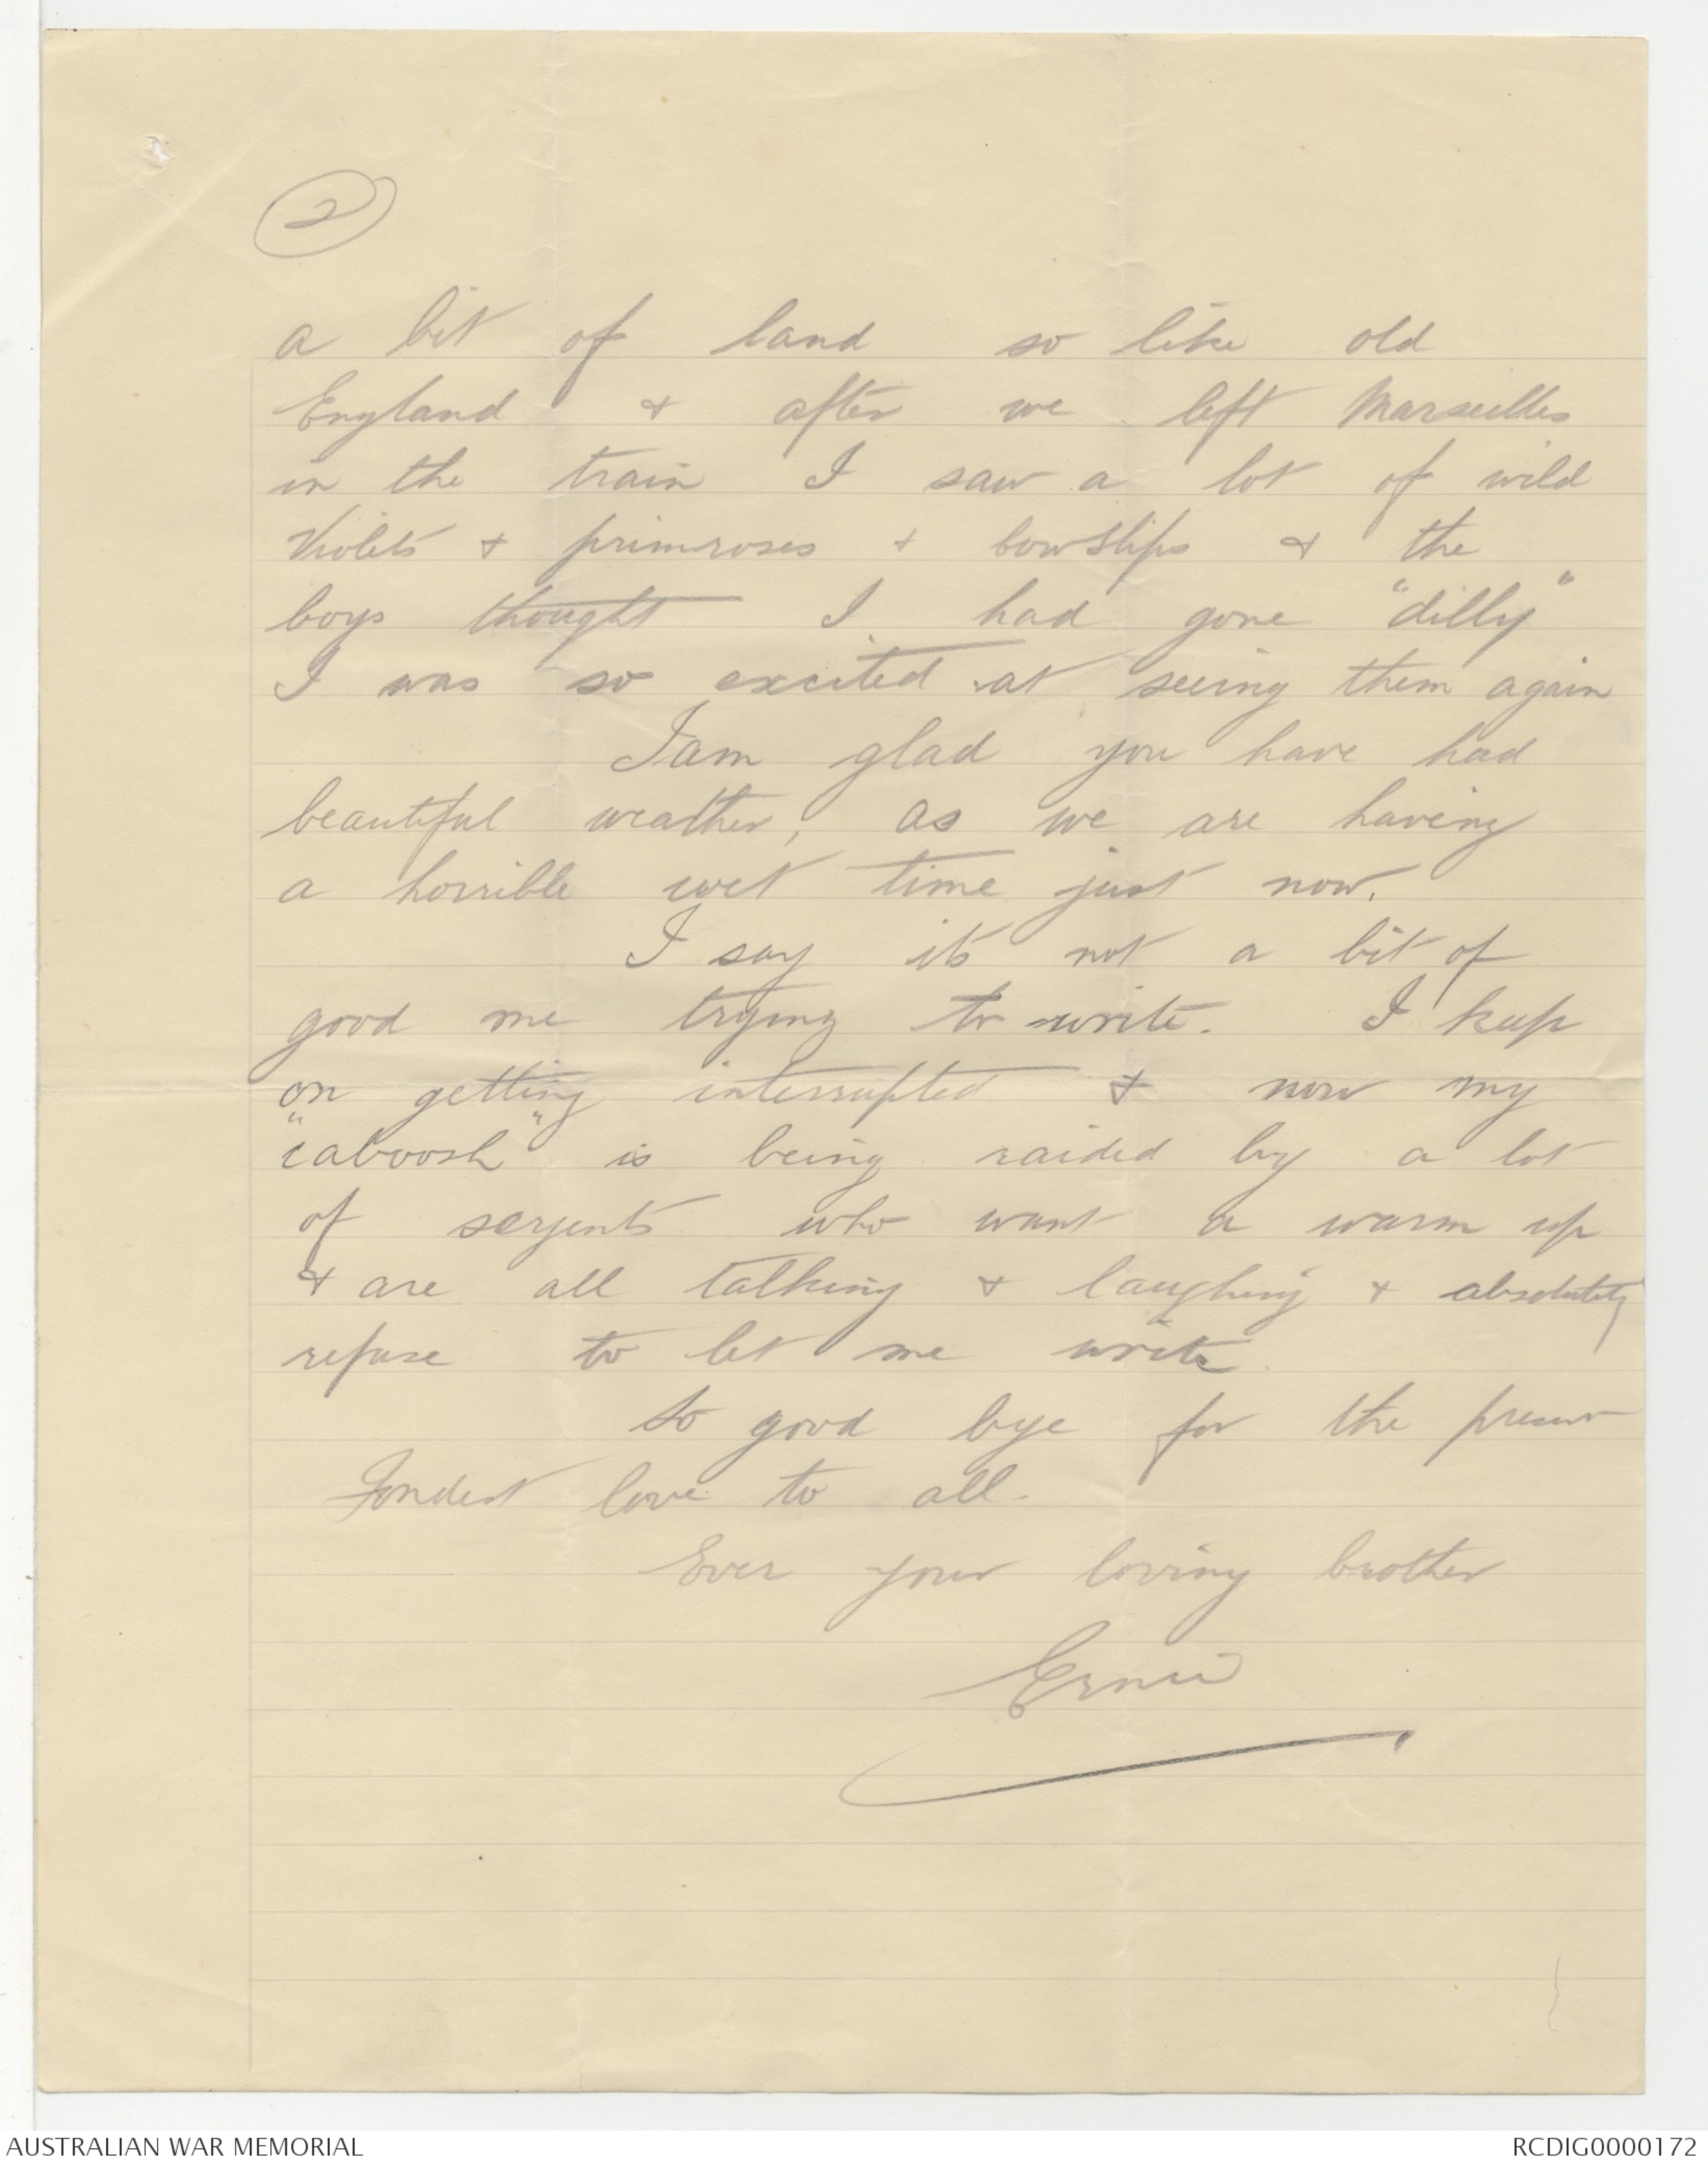 2
a bit of land so like old
England & after we left Marseilles
in the train I saw a lot of wild
Violets & primroses & cowslips & the
boys thought I had gone "dilly"
I was so excited at seeing them again
I am glad you have had
beautiful weather, as we are having
a horrible wet time just now.
I say its not a bit of
good me trying to write. I keep
on getting interrupted & now my
"caboosh" is being raided by a lot
of serjents who want a warm up
& are all talking & laughing & absolutely
refuse to let me write.
So good bye for the present
Fondest love to all.
Ever your loving brother
Ernie
AUSTRALIAN WAR MEMORIAL
RCDIG0000172